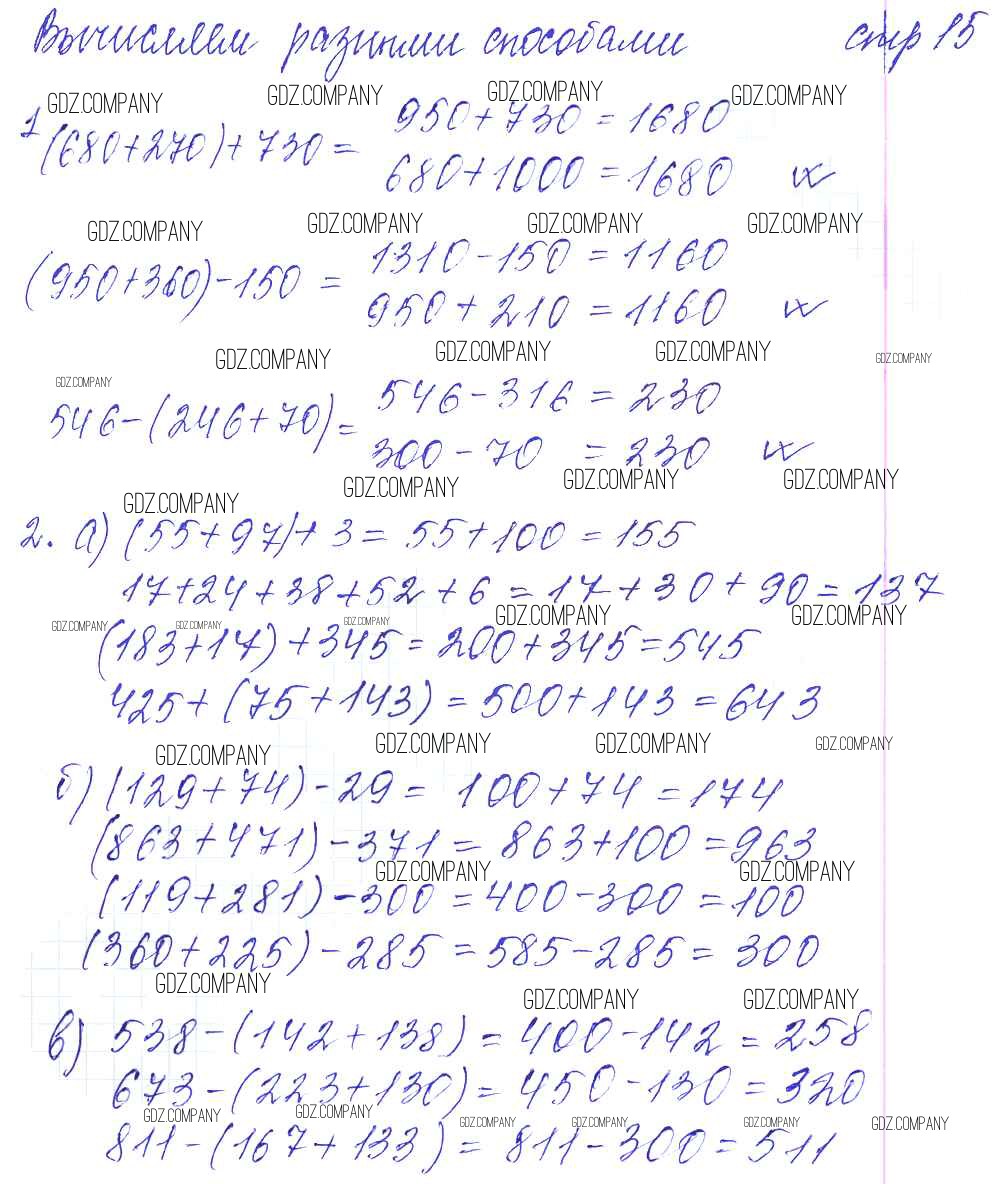 Вычисляем разными способами стр 15
GDZ.COMPANY GDZ.COMPANY GDZ.COMPANY GDZ.COMPANY
1 (680+270)+730 = 950+730 = 1680
680+1000 = 1680
GDZ.COMPANY GDZ.COMPANY GDZ.COMPANY GDZ.COMPANY
(950+360)-150 = 1310-150 = 1160
950+210 = 1160
GDZ.COMPANY GDZ.COMPANY GDZ.COMPANY GDZ.COMPANY
GDZ.COMPANY
546-(246+70) = 546-316 = 230
300-70 = 230
GDZ.COMPANY GDZ.COMPANY GDZ.COMPANY GDZ.COMPANY
2. а) (55+97)+3 = 55+100 = 155
17+24+38+52+6 = 17+30+90 = 137
GDZ.COMPANY GDZ.COMPANY GDZ.COMPANY GDZ.COMPANY GDZ.COMPANY
(183+17)+345 = 200+345 = 545
425+(75+143) = 500+143 = 643
GDZ.COMPANY GDZ.COMPANY GDZ.COMPANY GDZ.COMPANY
б) (129+74)-29 = 100+74 = 174
(863+471)-371 = 863+100 = 963
GDZ.COMPANY GDZ.COMPANY
(119+281)-300 = 400-300 = 100
(360+225)-285 = 585-285 = 300
GDZ.COMPANY GDZ.COMPANY GDZ.COMPANY
в) 538-(142+138) = 400-142 = 258
673-(223+130) = 450-130 = 320
GDZ.COMPANY GDZ.COMPANY GDZ.COMPANY GDZ.COMPANY GDZ.COMPANY GDZ.COMPANY
811-(167+133) = 811-300 = 511